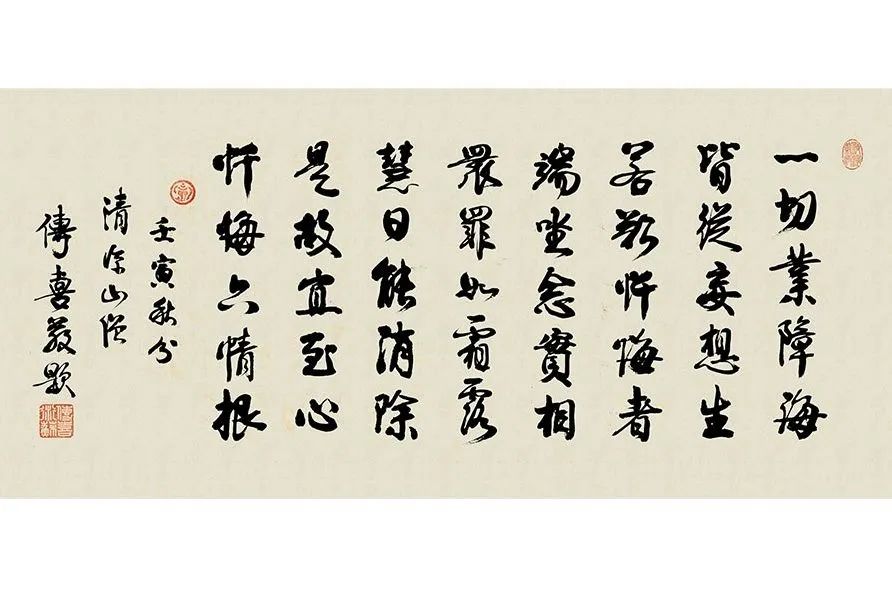 一切業障海
皆從妄想生
若欲忏悔者
端坐念實相
眾罪如霜露
慧日能消除
是故宜至心
忏悔六情根
壬寅秋分
清涼山僧
傳喜敬題